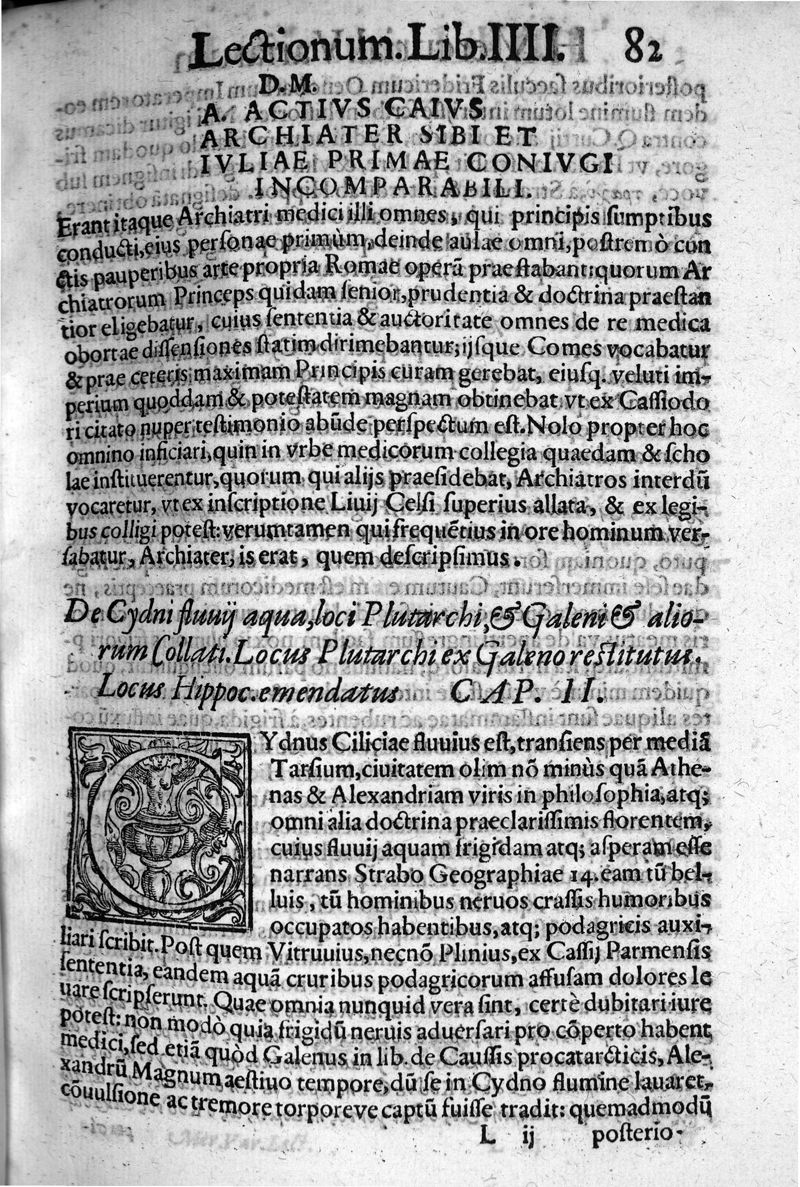 Lectionum. Lib. IIII. 82
D. M.
A. ACTIVS CAIVS
ARCHIATER SIBI ET
IVLIAE PRIMAE CONIVGI
INCOMPARABILI.
Erant itaque Archiatri medici illi omnes, qui principis ſumptibus
conducti, eius perſonae primùm, deinde aulae omni, poſtremò con
ctis pauperibus arte propria Romae operã praeſtabant: quorum Ar
chiatrorum Princeps quidam ſenior, prudentia & doctrina praeſtan
tior eligebatur, cuius ſententia & auctoritate omnes de re medica
obortae diſſenſiones ſtatim dirimebantur; ijſque Comes vocabatur
& prae ceteris maximam Principis curam gerebat, eiuſq. veluti im-
perium quoddam & poteſtatem magnam obtinebat vt ex Caſſiodo
ri citato nuper teſtimonio abũde perſpectum eſt. Nolo propter hoc
omnino inficiari, quin in vrbe medicorum collegia quaedam & ſcho
lae inſtituerentur, quorum qui alijs praeſidebat, Archiatros interdũ
vocaretur, vt ex inſcriptione Liuij Celſi ſuperius allata, & ex legi-
bus colligi poteſt: verumtamen qui frequẽtius in ore hominum ver-
ſabatur, Archiater, is erat, quem deſcripſimus.
De Cydni fluuij aqua, loci Plutarchi, & Galeni & alio-
rum Collati. Locus Plutarchi ex Galeno reſtitutus.
Locus Hippoc. emendatus CAP. II.
CYdnus Ciliciae fluuius eſt, tranſiens per mediã
Tarſium, ciuitatem olim nõ minùs quã Athe-
nas & Alexandriam viris in philoſophia, atq;
omni alia doctrina praeclariſſimis florentem,
cuius fluuij aquam frigidam atq; aſperam eſſe
narrans Strabo Geographiae 14. eam tũ bel-
luis, tũ hominibus neruos craſſis humoribus
occupatos habentibus, atq; podagricis auxi-
liari ſcribit. Poſt quem Vitruuius, necnõ Plinius, ex Caſſij Parmenſis
ſententia, eandem aquã cruribus podagricorum affuſam dolores le
uare ſcripſerunt. Quae omnia nunquid vera ſint, certè dubitari iure
poteſt: non modò quia frigidũ neruis aduerſari pro cõperto habent
medici, ſed etiã quòd Galenus in lib. de Cauſſis procatarcticis, Ale-
xandrũ Magnum aeſtiuo tempore, dũ ſe in Cydno flumine lauaret,
cõuulſione ac tremore torporeve captũ fuiſſe tradit: quemadmodũ
L ij poſterio-